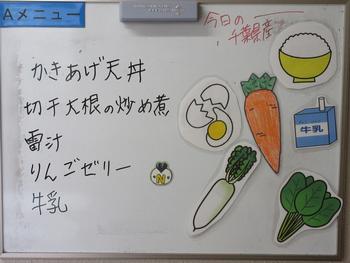 Aメニュー
今日の
千葉県産
かきあげ天丼
切干大根の炒め煮
雷汁
りんごゼリー
牛乳
牛乳
N